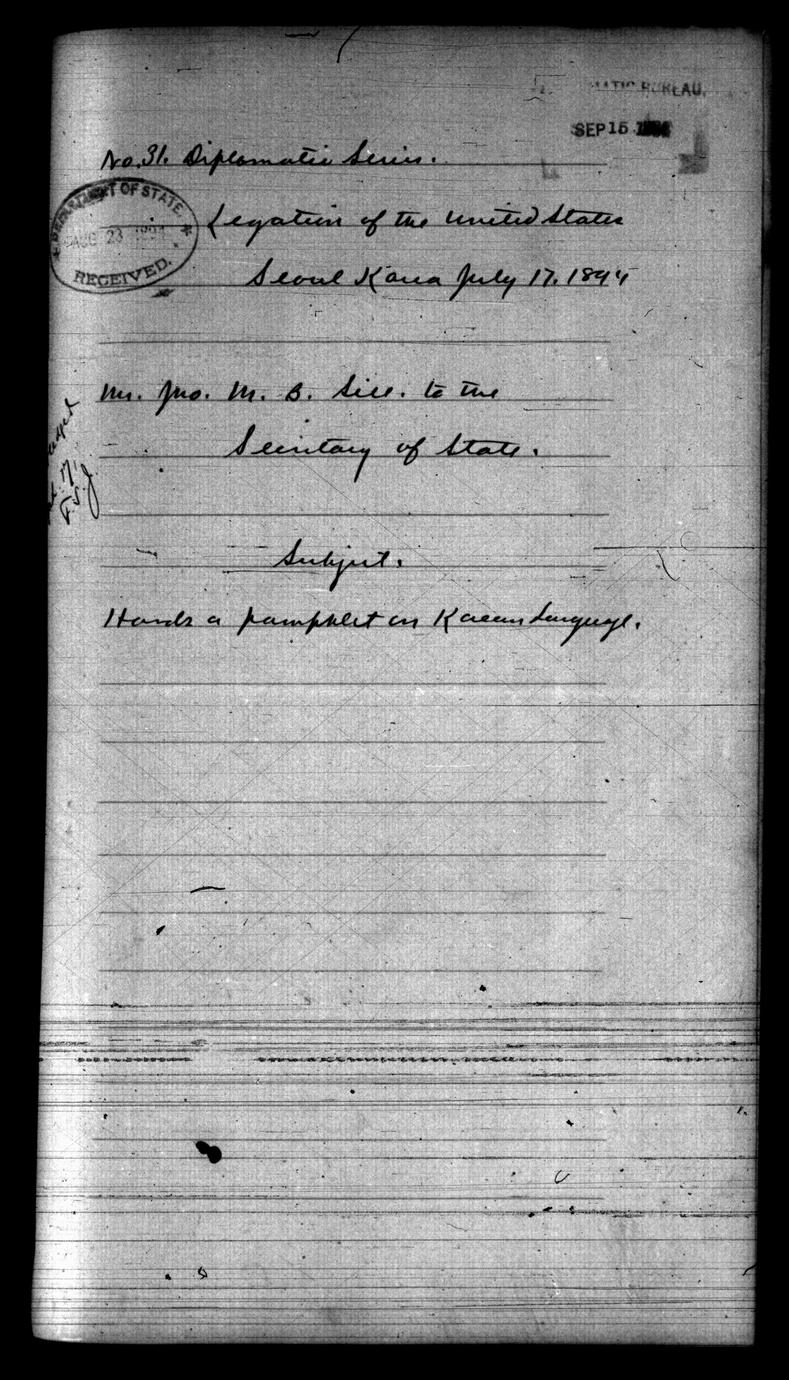 DIPLOMATIC BUREAU,
SEP 15
No. 31. Diplomatic Series.
DEPARTMENT OF STATE.
AUG 23 1894
RECEIVED.
Legation of the United States
Seoul Korea July 17. 1894
Mr. Jno. M. B. Sill. to the
Secretary of State.
Subject.
Hands a pamphlet on Korean Language.